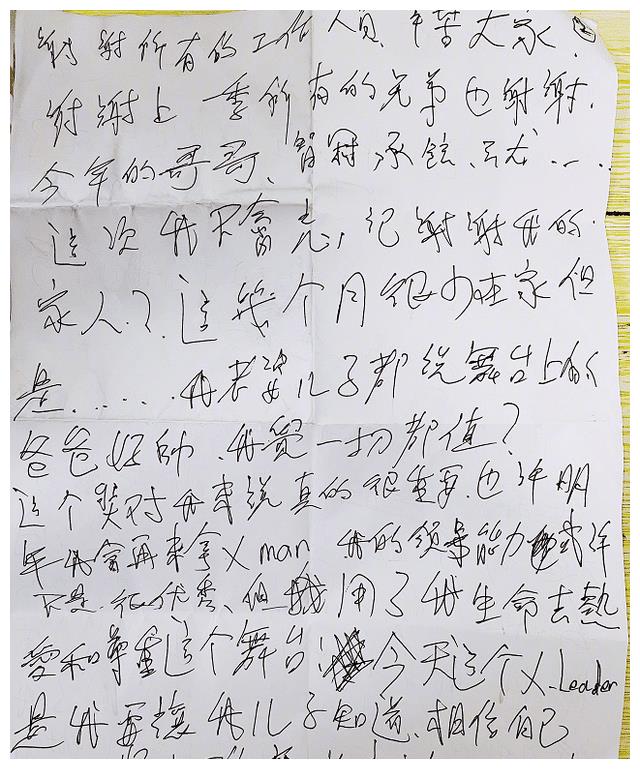 谢谢所有的工作人员 辛苦大家.
谢谢上一季所有的兄弟也谢谢.
今年的哥哥、智霖 承铉、....
这次我不会忘记谢谢我的.
家人??这几个月很少在家但
是.....我老婆儿子都说舞台上的
爸爸好帅.我觉一切都值?
这个奖对我来说真的很重要.也许明
年我会再来拿X man 我的领导能力或许
不是.很优秀、但我用了我生命去熱
愛和尊重这个舞台 今天这个X-Leader
是我要讓我儿子知道.相信自己